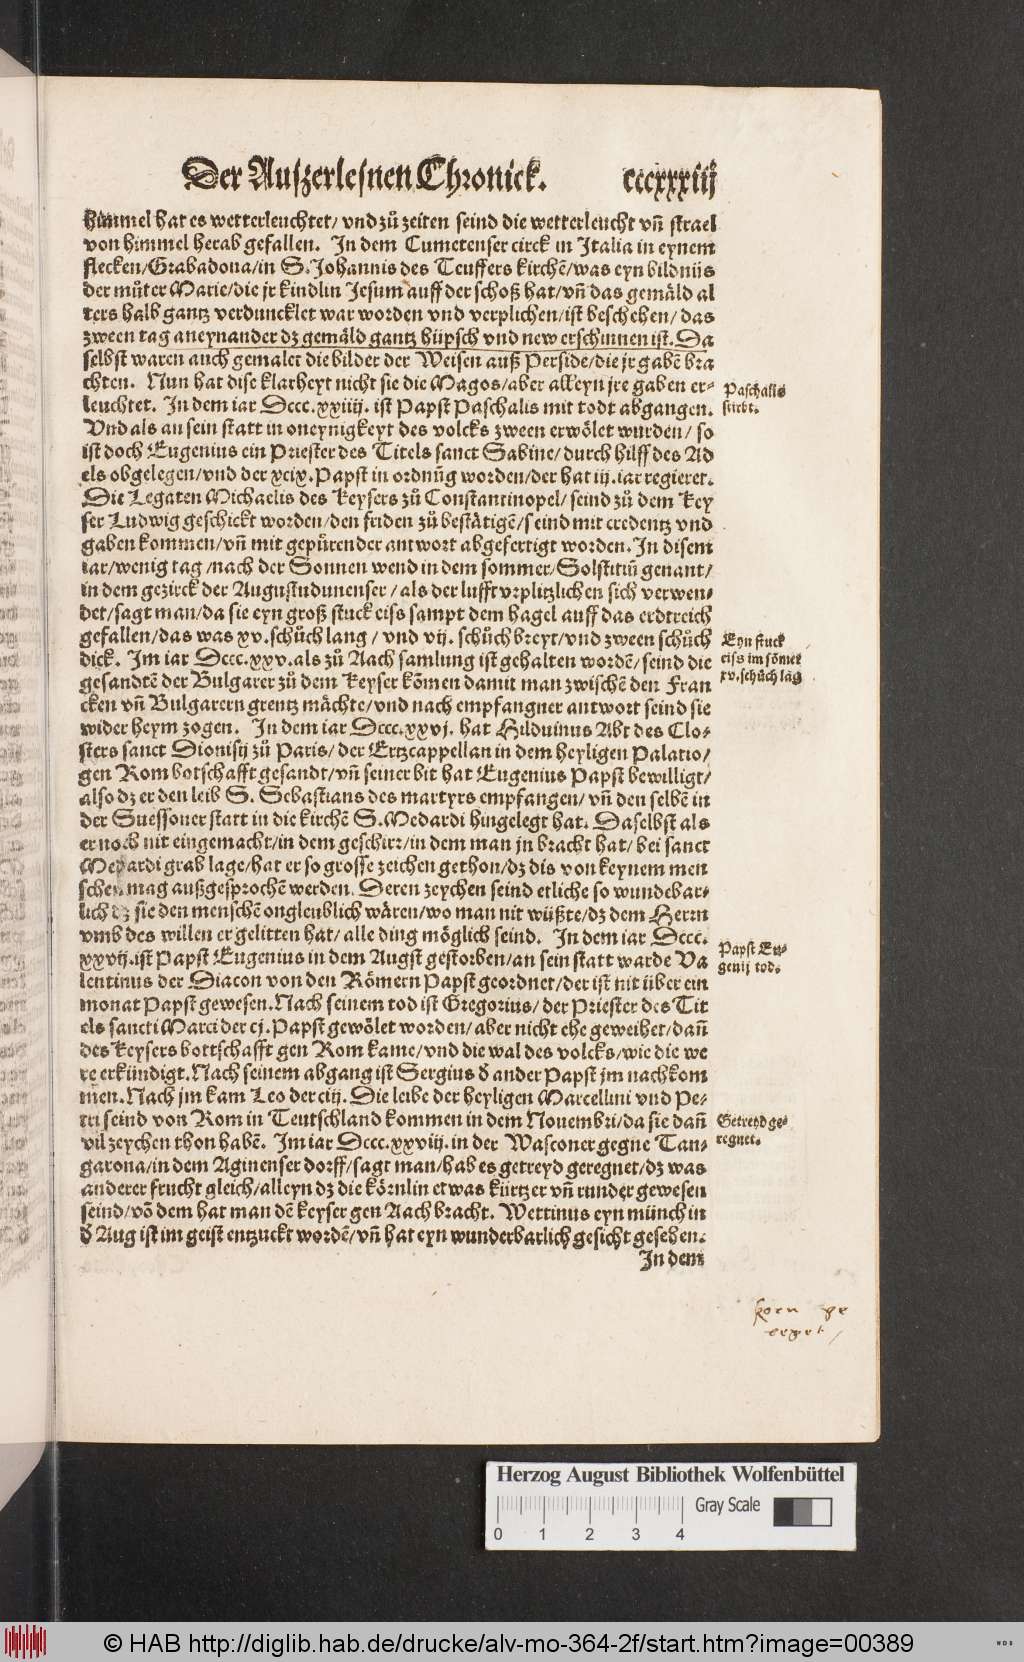 Der Auszerlesnen Chronick. cccxxxiij
himmel hat es wetterleuchtet/ vnd zů zeiten seind die wetterleucht vñ strael
von himmel herab gefallen. In dem Cumetenser circk in Italia in eynem
flecken/Grabadona/in S. Johannis des Teuffers kirchē/was eyn bildniis
der můter Marie/die jr kindlin Jesum auff der schoß hat/vñ das gemäld al
ters halb gantz verduncklet war worden vnd verplichen/ist beschehen/ das
zween tag aneynander dz gemäld gantz hüpsch vnd new erschinnen ist. Da
selbst waren auch gemalet die bilder der Weisen auß Perside/die jr gabē bra
chten. Nun hat dise klarheyt nicht sie die Magos/aber alleyn jre gaben er-
leuchtet. In dem iar Dccc.xxiiij. ist Papst Paschalis mit todt abgangen.
Vnd als an sein statt in oneynigkeyt des volcks zween erwölet wurden/ so
ist doch Eugenius ein Priester des Titels sanct Sabine/durch hilff des Ad
els obgelegen/vnd der xcix. Papst in ordnūg worden/der hat iij. iar regieret.
Die Legaten Michaelis des Keysers zů Constantinopel/ seind zů dem Key
ser Ludwig geschickt worden/den friden zů bestätigē/seind mit credentz vnd
gaben kommen/vñ mit gepürender antwort abgefertigt worden. In disem
iar/wenig tag/nach der Sonnen wend in dem sommer/Solstitiū genant/
in dem gezirck der Augustudunenser/als der lufft vrplitzlichen sich verwen-
det/sagt man/da sie eyn groß stuck eiss sampt dem hagel auff das erdtreich
gefallen/das was xv. schůch lang/ vnd vij. schůch breyt/vnd zween schůch
dick. Im iar Dccc.xxv. als zů Aach samlung ist gehalten wordē/seind die
gesandtē der Bulgarer zů dem Keyser kōmen damit man zwischē den Fran
cken vñ Bulgarern grentz mächte/vnd nach empfangner antwort seind sie
wider heym zogen. In dem iar Dccc.xxvj. hat Hilduinus Abt des Clo-
sters sanct Dionisij zů Paris/der Ertzcappellan in dem heyligen Palatio/
gen Rom botschafft gesandt/vñ seiner bit hat Eugenius Papst bewilligt/
also dz er den leib S. Sebastians des martyrs empfangen/ vñ den selbē in
der Suessoner statt in die kirchē S. Medardi hingelegt hat. Daselbst als
er noch nit eingemacht/in dem geschirr/in dem man jn bracht hat/ bei sanct
Medardi grab lage/hat er so grosse zeichen gethon/dz dis von keynem men
schen mag außgesprochē werden. Deren zeychen seind etliche so wundebar-
lich dz sie den menschē ongleublich wären/wo man nit wüßte/dz dem Herrn
vmb des willen er gelitten hat/alle ding möglich seind. In dem iar Dccc.
xxvij. ist Papst Eugenius in dem Augst gestorben/an sein statt warde Va
lentinus der Diacon von den Römern Papst geordnet/der ist nit über ein
monat Papst gewesen. Nach seinem tod ist Gregorius/der Priester des Tit
els sancti Marci der cj. Papst gewölet worden/aber nicht ehe geweihet/dañ
des Keysers bottschafft gen Rom kame/vnd die wal des volcks/wie die we
re erkündigt. Nach seinem abgang ist Sergius d̄ ander Papst jm nachkom
men. Nach jm kam Leo der ciij. Die leibe der heyligen Marcellini vnd Pe-
tri seind von Rom in Teutschland kommen in dem Nouembri/da sie dañ
vil zeychen thon habē. Im iar Dccc.xxviij. in der Wasconer gegne Tan-
garona/in dem Aginenser dorff/sagt man/hab es getreyd geregnet/dz was
anderer frucht gleich/alleyn dz die körnlin etwas kürtzer vñ runder gewesen
seind/vō dem hat man dē keyser gen Aach bracht. Wettinus eyn münch in
d̄ Aug ist im geist entzuckt wordē/vñ hat eyn wunderbarlich gesicht gesehen.
In dem
Paschalis
stirbt.
Eyn stuck
eiss im sōmer
xv. schůch lāg
Papst Eu-
genij tod.
Getreyd ge-
regnet.
korn ge
reget
Herzog August Bibliothek Wolfenbüttel
Gray Scale
0 1 2 3 4
© HAB http://diglib.hab.de/drucke/alv-mo-364-2f/start.htm?image=00389